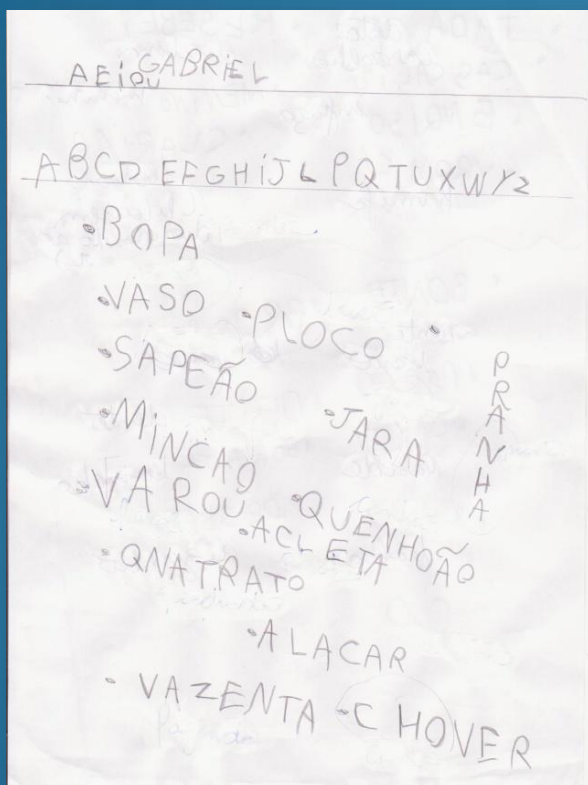 GABRIEL
AEiou
ABCD EFGHiJL PQTUXWYZ
•BOPA
•VASO •PLOCO
•SAPEÃO
•JARA
PRÃNHA
•MiNCAO
•VAROU •QUENHOÃO
•ACLETA
•QNATRATO
•ALACAR
•VAZENTA •CHOVER